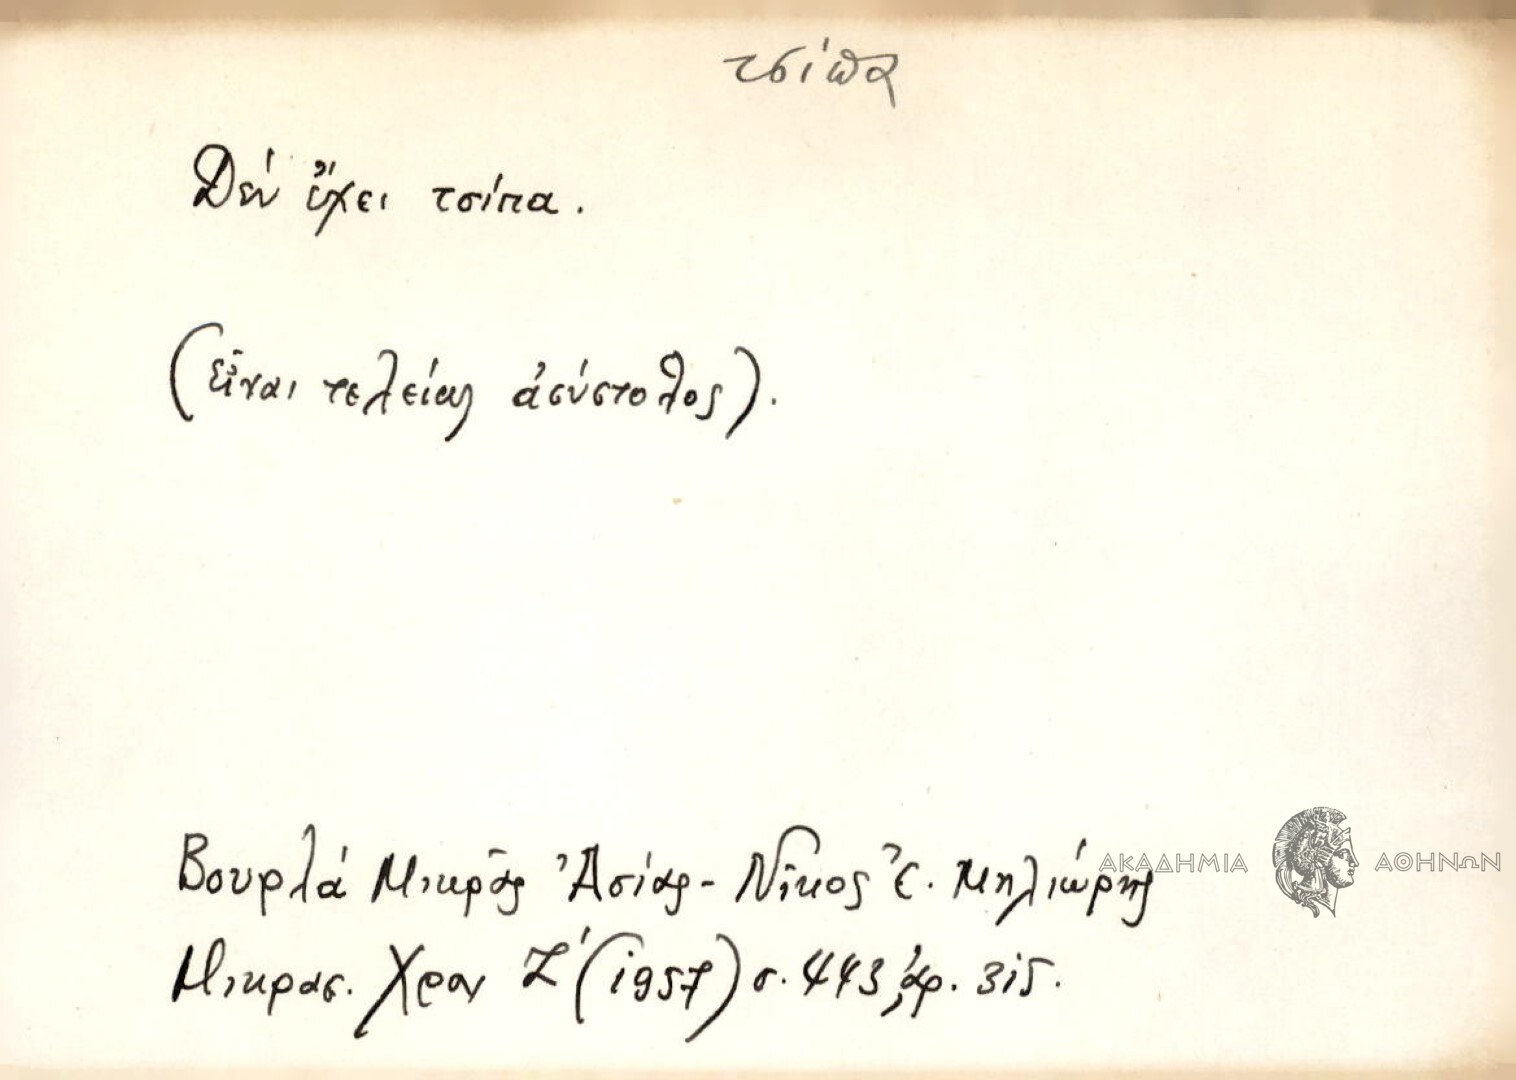 τσίπα
Δέν ἔχει τσίπα.
(Εἶναι τελείως ἀσύστολος).
Βουρλά Μικρᾶς Ἀσίας - Νῖκος Ἐ. Μηλιώρης
ΑΚΑΔΗΜΙΑ ΑΘΗΝΩΝ
Μικρασ. Χρον Ζ΄ (1957) σ. 443, ἀρ. 315.